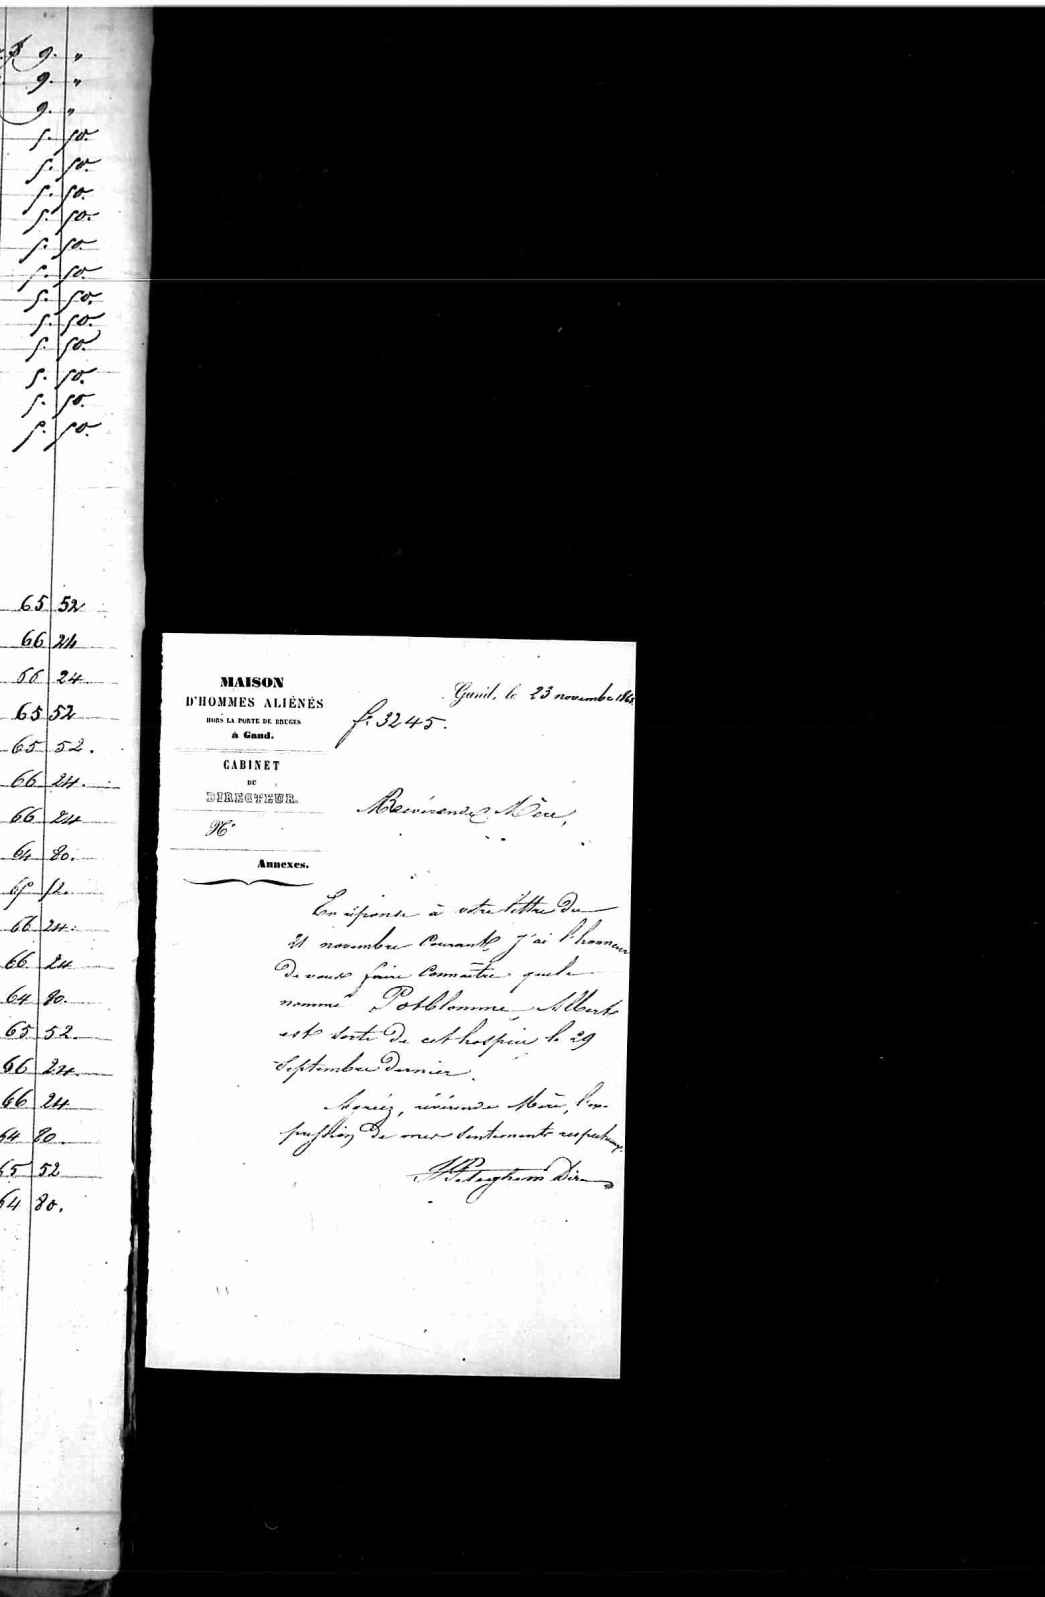 9. "
9. "
9. "
5. 50.
5. 50.
5. 50.
5. 50.
5. 50.
5. 50.
5. 50.
5. 50.
5. 50.
5. 50.
5. 50.
5. 50.
65 52
66 24
66 24
65 52
65 52.
66 24.
66 24
64 80.
65 52.
66 24.
66 24
64 80.
65 52.
66 24.
66 24
64 80.
65 52
64 80.
MAISON
D'HOMMES ALIÉNÉS
HORS LA PORTE DE BRUGES
à Gand.
CABINET
DU
DIRECTEUR.
N°
Annexes.
Gand, le 23 novembre
f° 3245.
Révérende Mère,
En réponse à votre lettre du
21 novembre courant, j'ai l'honneur
de vous faire connaître que le
nommé Potblomme, Albert
est sorti de cet hospice le 29
Septembre dernier.
Agréez, révérende Mère, l'ex-
pression de mes sentiments respectueux.